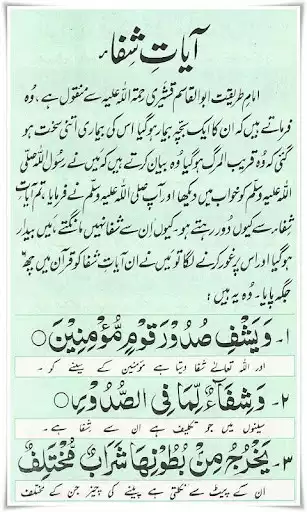 آیاتِ شِفاء
امام طریقت ابوالقاسم قشیری رحمۃ اللہ علیہ سے منقول ہے، وہ
فرماتے ہیں کہ ان کا ایک بچہ بیمار ہوگیا اس کی بیماری اتنی سخت ہو
گئی کہ وہ قریب المرگ ہوگیا وہ بیان کرتے ہیں کہ میں نے رسول اللہ صلی
اللہ علیہ وسلم کو خواب میں دیکھا اور آپ صلی اللہ علیہ وسلم نے فرمایا، تم آیاتِ
شفاء سے کیوں دور رہتے ہو۔ کیوں ان سے شفا نہیں مانگتے، میں بیدار
ہوگیا اور اس پر غور کرنے لگا تو میں نے ان آیاتِ شفا کو قرآن میں چھ
جگہ پایا۔ وہ یہ ہیں:
۱- وَيَشْفِ صُدُوْرَ قَوْمٍ مُّؤْمِنِيْنَ ○
اور اللہ تعالےٰ شفا دیتا ہے مؤمنین کے سینے کو۔
۲- وَشِفَآءٌ لِّمَا فِي الصُّدُوْرِ ○
سینوں میں جو تکلیف ہے ان سے شفا ہے۔
۳- يَخْرُجُ مِنْۢ بُطُوْنِهَا شَرَابٌ مُّخْتَلِفٌ
ان کے پیٹ سے نکلتی ہے پینے کی چیز جن کے مختلف